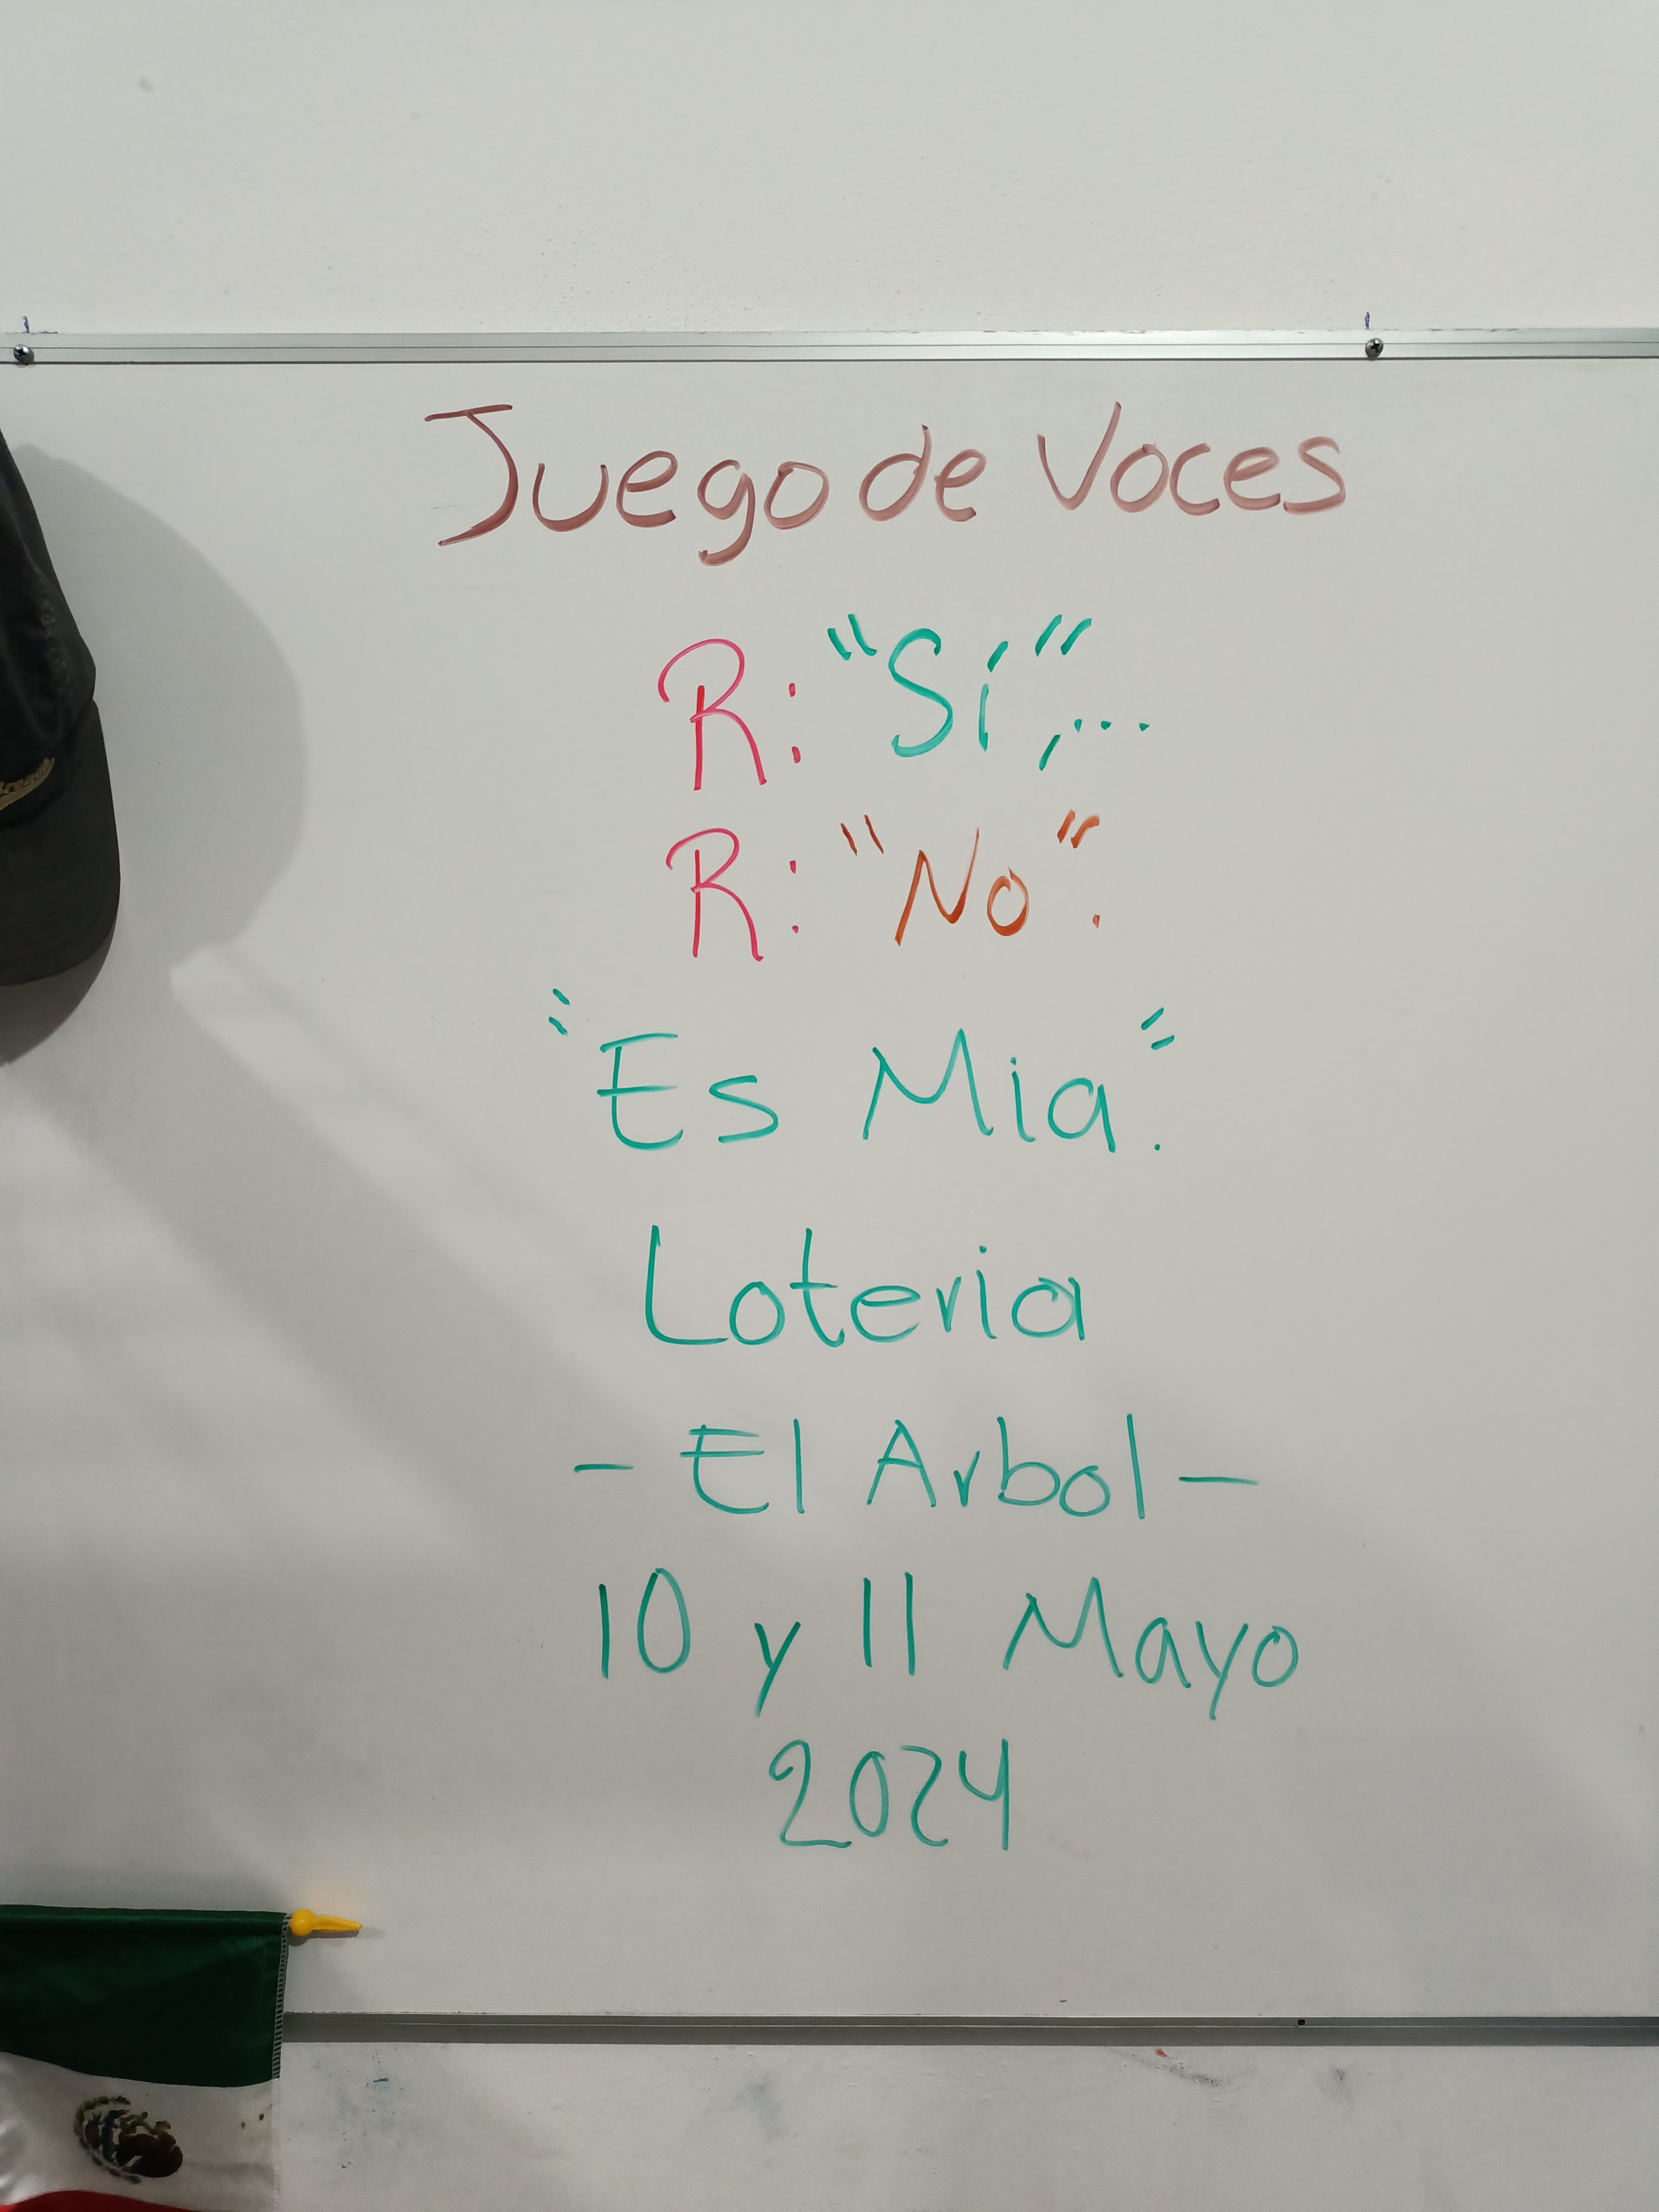 Juego de Voces
R: "Sí",...
R: "No".
"Es Mia."
Loteria
- El Arbol -
10 y 11 Mayo
2024